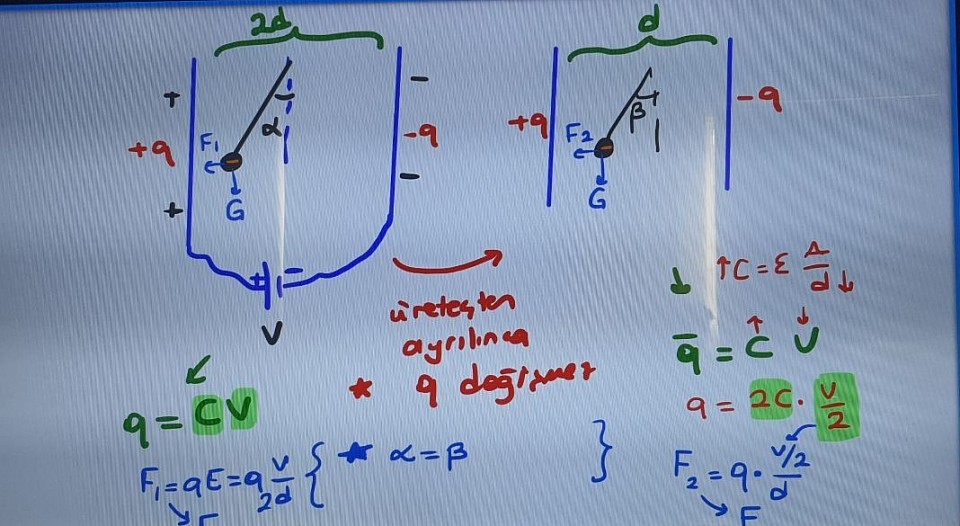 2d
d
+ α -
+q F₁ -q
+ G -
+q F₂ β -q
G
+ -
V
üreteçten
ayrılınca
* q değişmez
↑C = ε A/d↓
q = CV
q̅ = C↑ V↓
q = 2C · V/2
F₁ = qE = q V/2d { * α = β }
F₂ = q · V/2/d
F
F